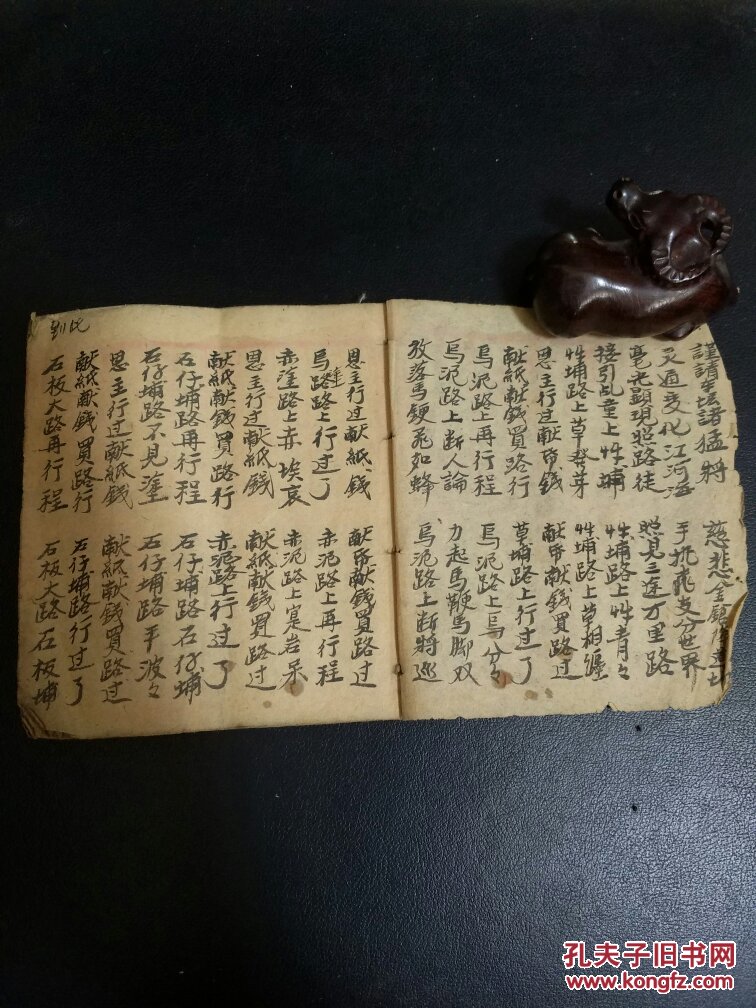 謹請本坛諸猛將
灵通变化江河海
毫光顕現照路徒
接引乱童上性埔
牲埔路上草發芽
恩主行过献帋錢
献紙献錢買路行
烏泥路上再行程
烏泥路上断人論
放落馬鞭飛如蜂
慈悲金
手執飛 分世界
照見三途万里路
牲埔路上牲青々
牲埔路上草相纏
献帋献錢買路过
草埔路上行过了
烏泥路上烏分々
力起馬鞭馬脚双
烏泥路上断將巡
到此
恩主行过献紙錢
烏路路上行过了
赤塗路上赤埃哀
恩主行过献紙錢
献紙献錢買路行
石仔埔路再行程
石仔埔路不見塗
恩主行过献紙錢
献紙献錢買路行
石板大路再行程
献帋献錢買路过
赤泥路上再行程
赤泥路上冥岩呆
献紙献錢買路过
赤泥路上行过了
石仔埔路石仔埔
石仔埔路平波々
献紙献錢買路过
石仔埔路行过了
石板大路石板埔
孔夫子旧书网
www.kongfz.com